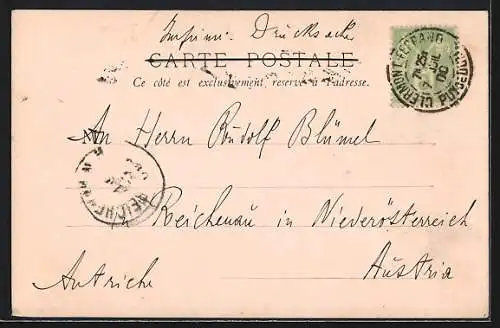 Imprimé Drucksache
CARTE POSTALE
Ce côté est exclusivement réservé à l'adresse.
CLERMONT-FERRAND PUY-DE-DOME
M
An Herrn Rudolf Blümel
REICHENAU
Reichenau in Niederösterreich
Autriche Austria